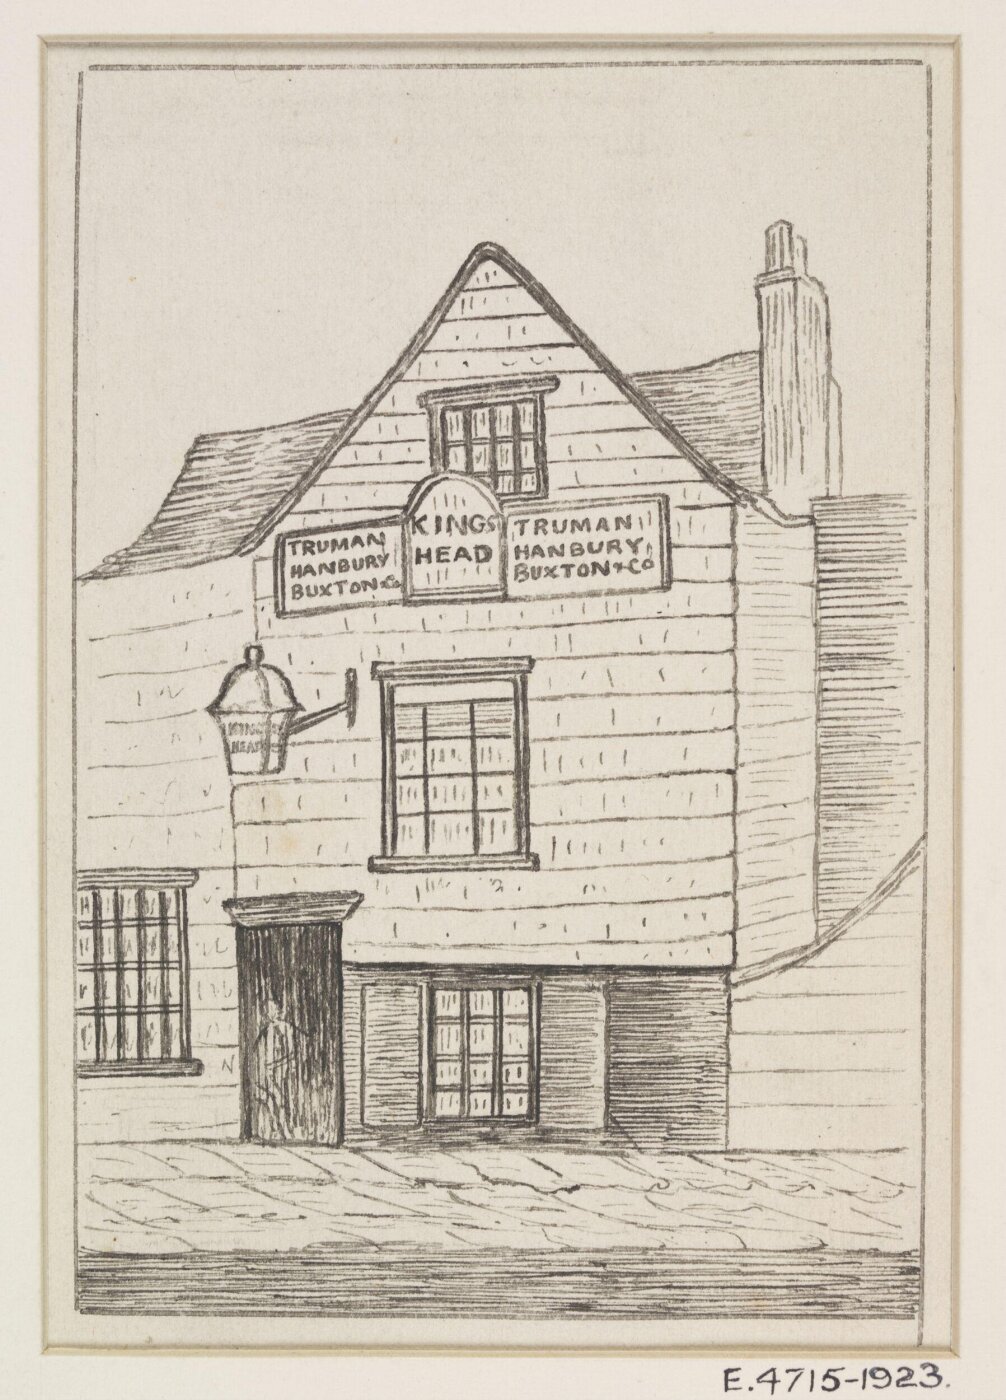 TRUMAN
HANBURY
BUXTON & Co
KINGS
HEAD
TRUMAN
HANBURY,
BUXTON & Co
KINGS
HEAD
E.4715-1923.